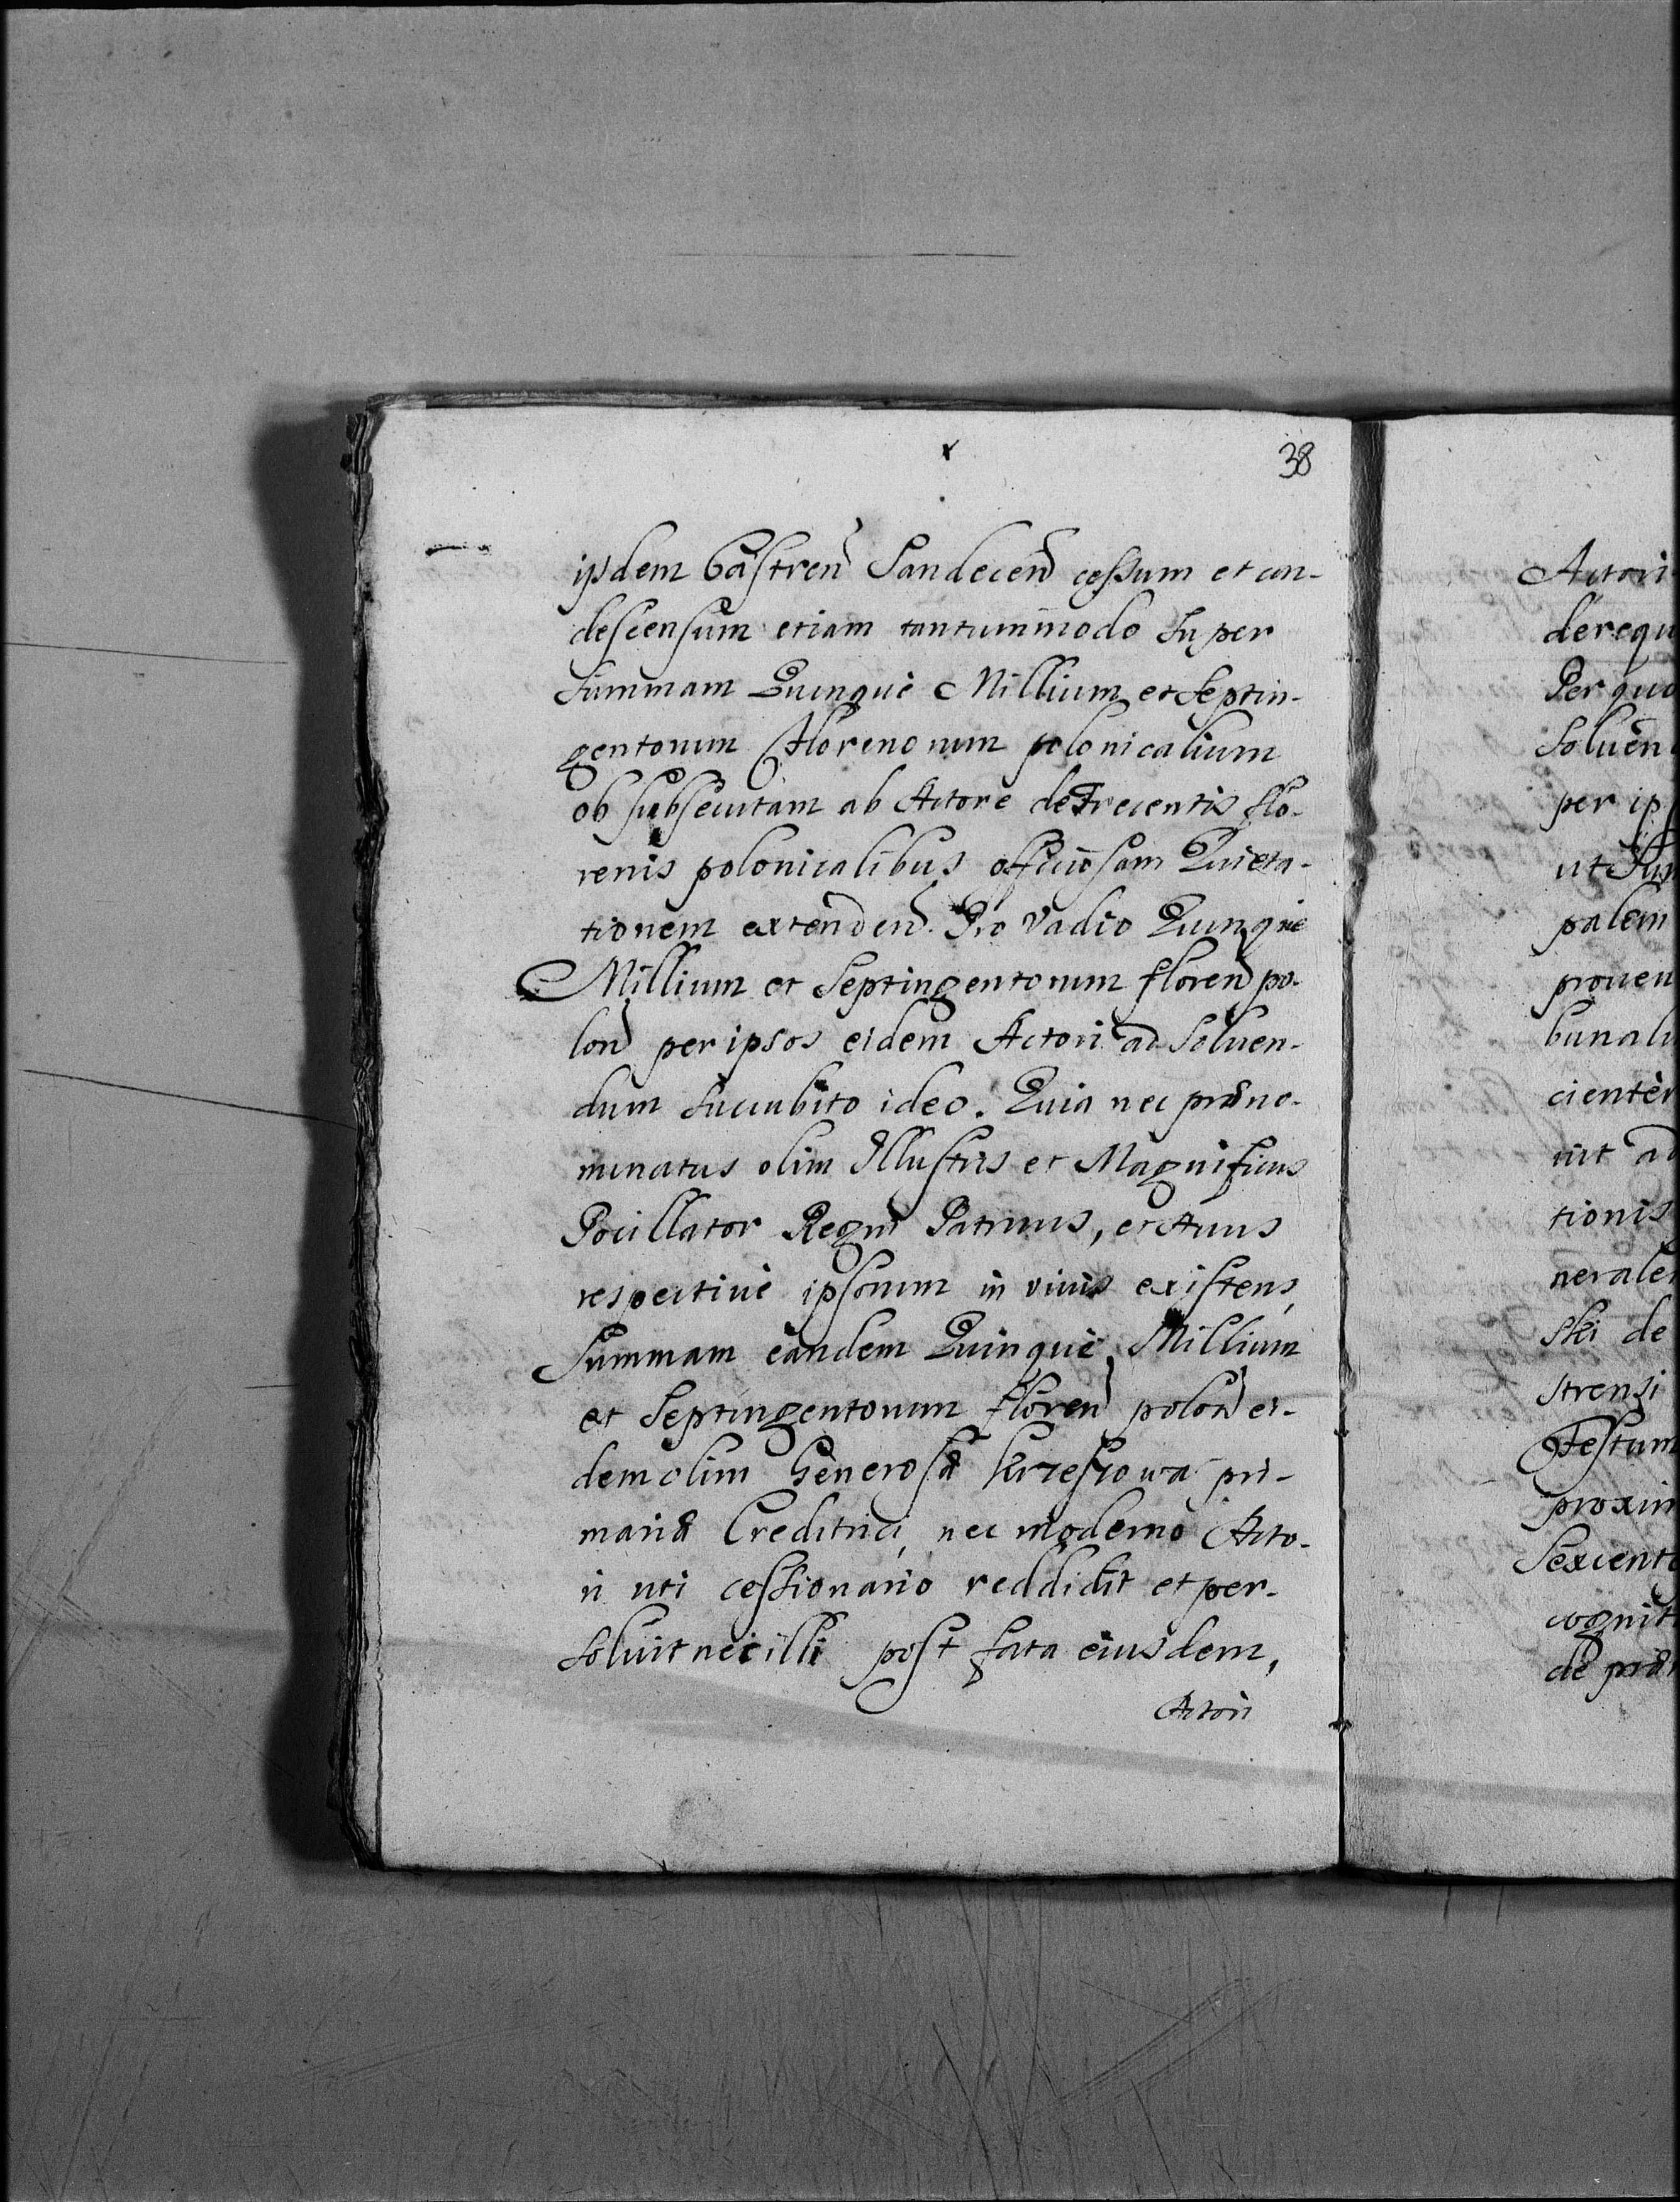 38
ijsdem Castren Sandecen cessum et con-
descensum etiam tantummodo Super
Summam Quinque Millium et Septin-
gentorum Florenorum polonicalium
ob subsecutam ab Actore de Trecentis flo-
renis polonicalibus officiosam Quieta-
tionem extenden. Pro Vadio Quinque
Millium et Septingentorum floren po-
lon per ipsos eidem Actori ad Soluen-
dum Succubito ideo. Quia nec præno-
minatus olim Illustris et Magnificus
Pocillator Regni Patruus, et Auus
respectiuè ipsorum in viuis existens,
Summam eandem Quinque Millium
et Septingentorum floren polon ei-
dem olim Generosæ Krzeszowa pri-
mariæ Creditrici, nec moderno Acto-
ri uti cessionario reddidit et per-
soluit nec illi post fata eiusdem,
Actori
Actori
derequ
Per quu
Soluen
per ip
ut Sum
palem
proueu
bunali
cienter
uit ad
tionis
nerale
ski de
strensi
Festum
proxim
Sexcento
cognit
de præ